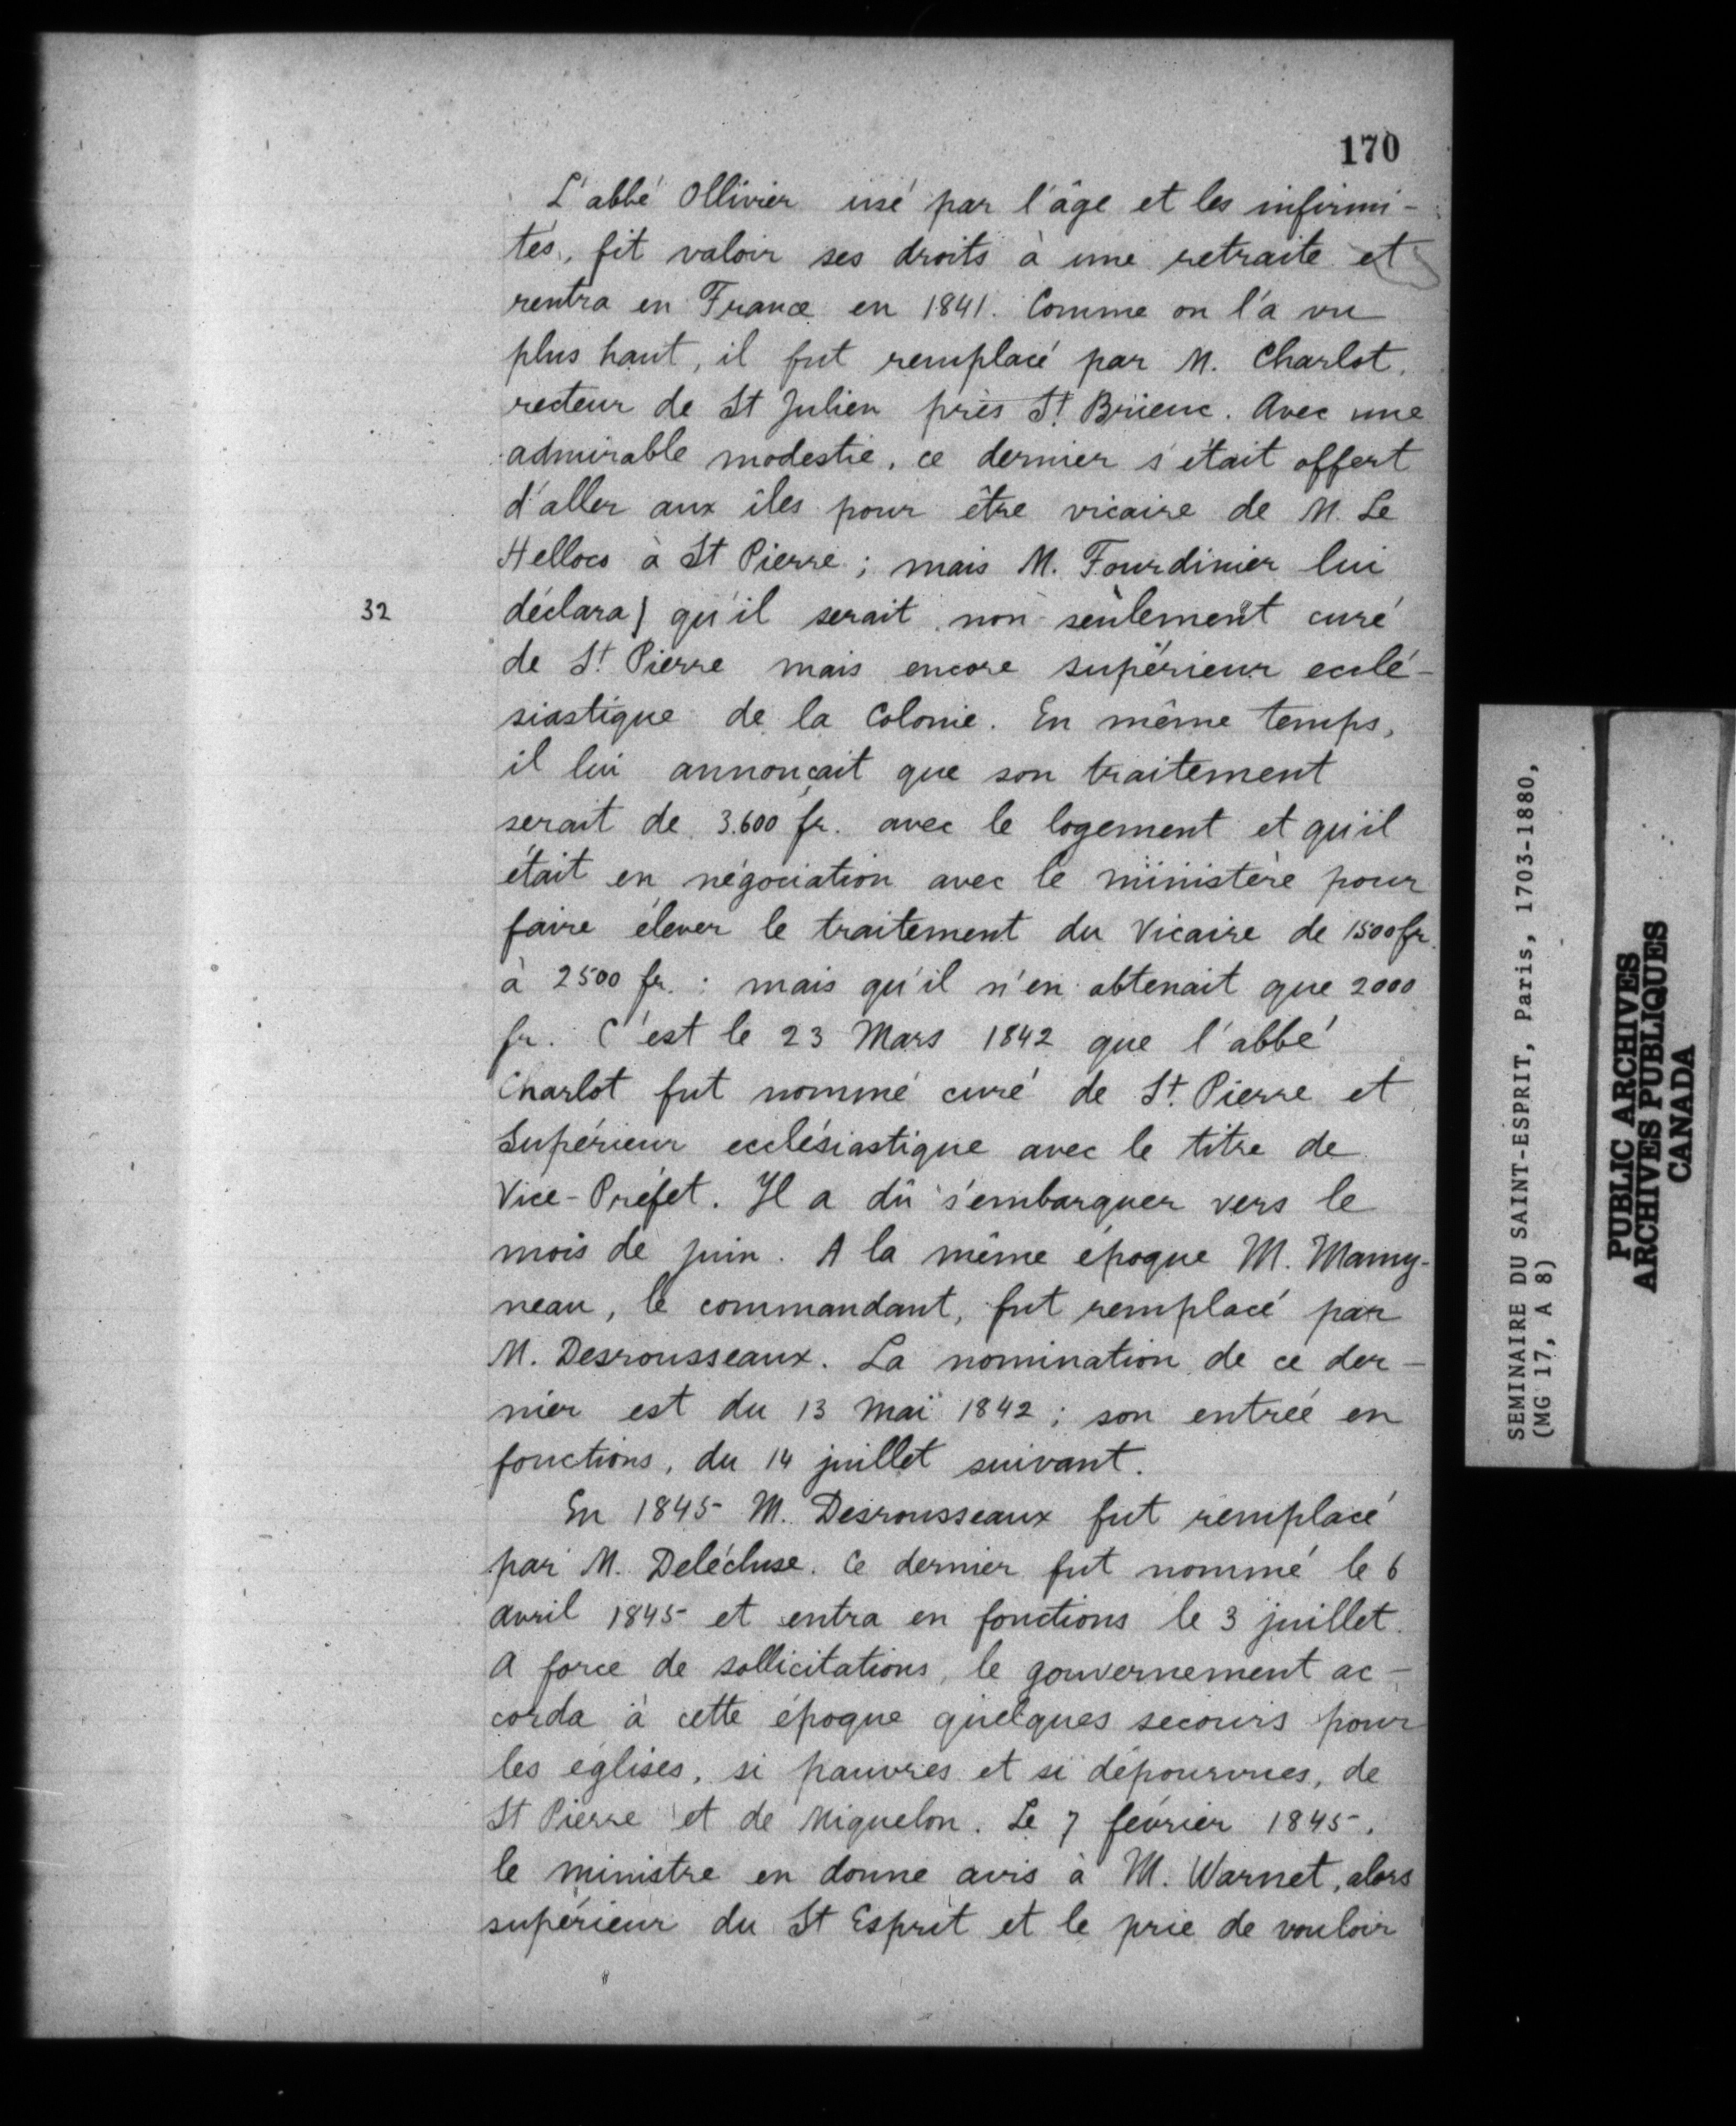 170
L'abbé Ollivier usé par l'âge et les infirmi-
tés, fit valoir ses droits à une retraite et
rentra en France en 1841. Comme on l'a vu
plus haut, il fut remplacé par M. Charlot,
recteur de St Julien près St. Brieuc. Avec une
admirable modestie, ce dernier s'était offert
d'aller aux îles pour être vicaire de M. Le
Hellocs à St Pierre ; mais M. Fourdinier lui
32 déclara) qu'il serait non seulement curé
de St. Pierre mais encore supérieur ecclé-
siastique de la Colonie. En même temps,
il lui annonçait que son traitement
serait de 3.600 fr. avec le logement et qu'il
était en négociation avec le ministère pour
faire élever le traitement du Vicaire de 1500 fr.
à 2500 fr. : mais qu'il n'en obtenait que 2000
fr. C'est le 23 Mars 1842 que l'abbé
Charlot fut nommé curé de St. Pierre et
Supérieur ecclésiastique avec le titre de
Vice-Préfet. Il a dû s'embarquer vers le
mois de juin. A la même époque M. Mamy-
neau, le commandant, fut remplacé par
M. Desrousseaux. La nomination de ce der-
nier est du 13 mai 1842 ; son entrée en
fonctions, du 14 juillet suivant.
En 1845 M. Desrousseaux fut remplacé
par M. Delécluse. Ce dernier fut nommé le 6
avril 1845 et entra en fonctions le 3 juillet.
A force de sollicitations, le gouvernement ac-
corda à cette époque quelques secours pour
les églises, si pauvres et si dépourvues, de
St Pierre et de Miquelon. Le 7 février 1845,
le ministre en donne avis à M. Warnet, alors
supérieur du St Esprit et le prie de vouloir
SEMINAIRE DU SAINT-ESPRIT, Paris, 1703-1880,
(MG 17, A 8)
PUBLIC ARCHIVES
ARCHIVES PUBLIQUES
CANADA